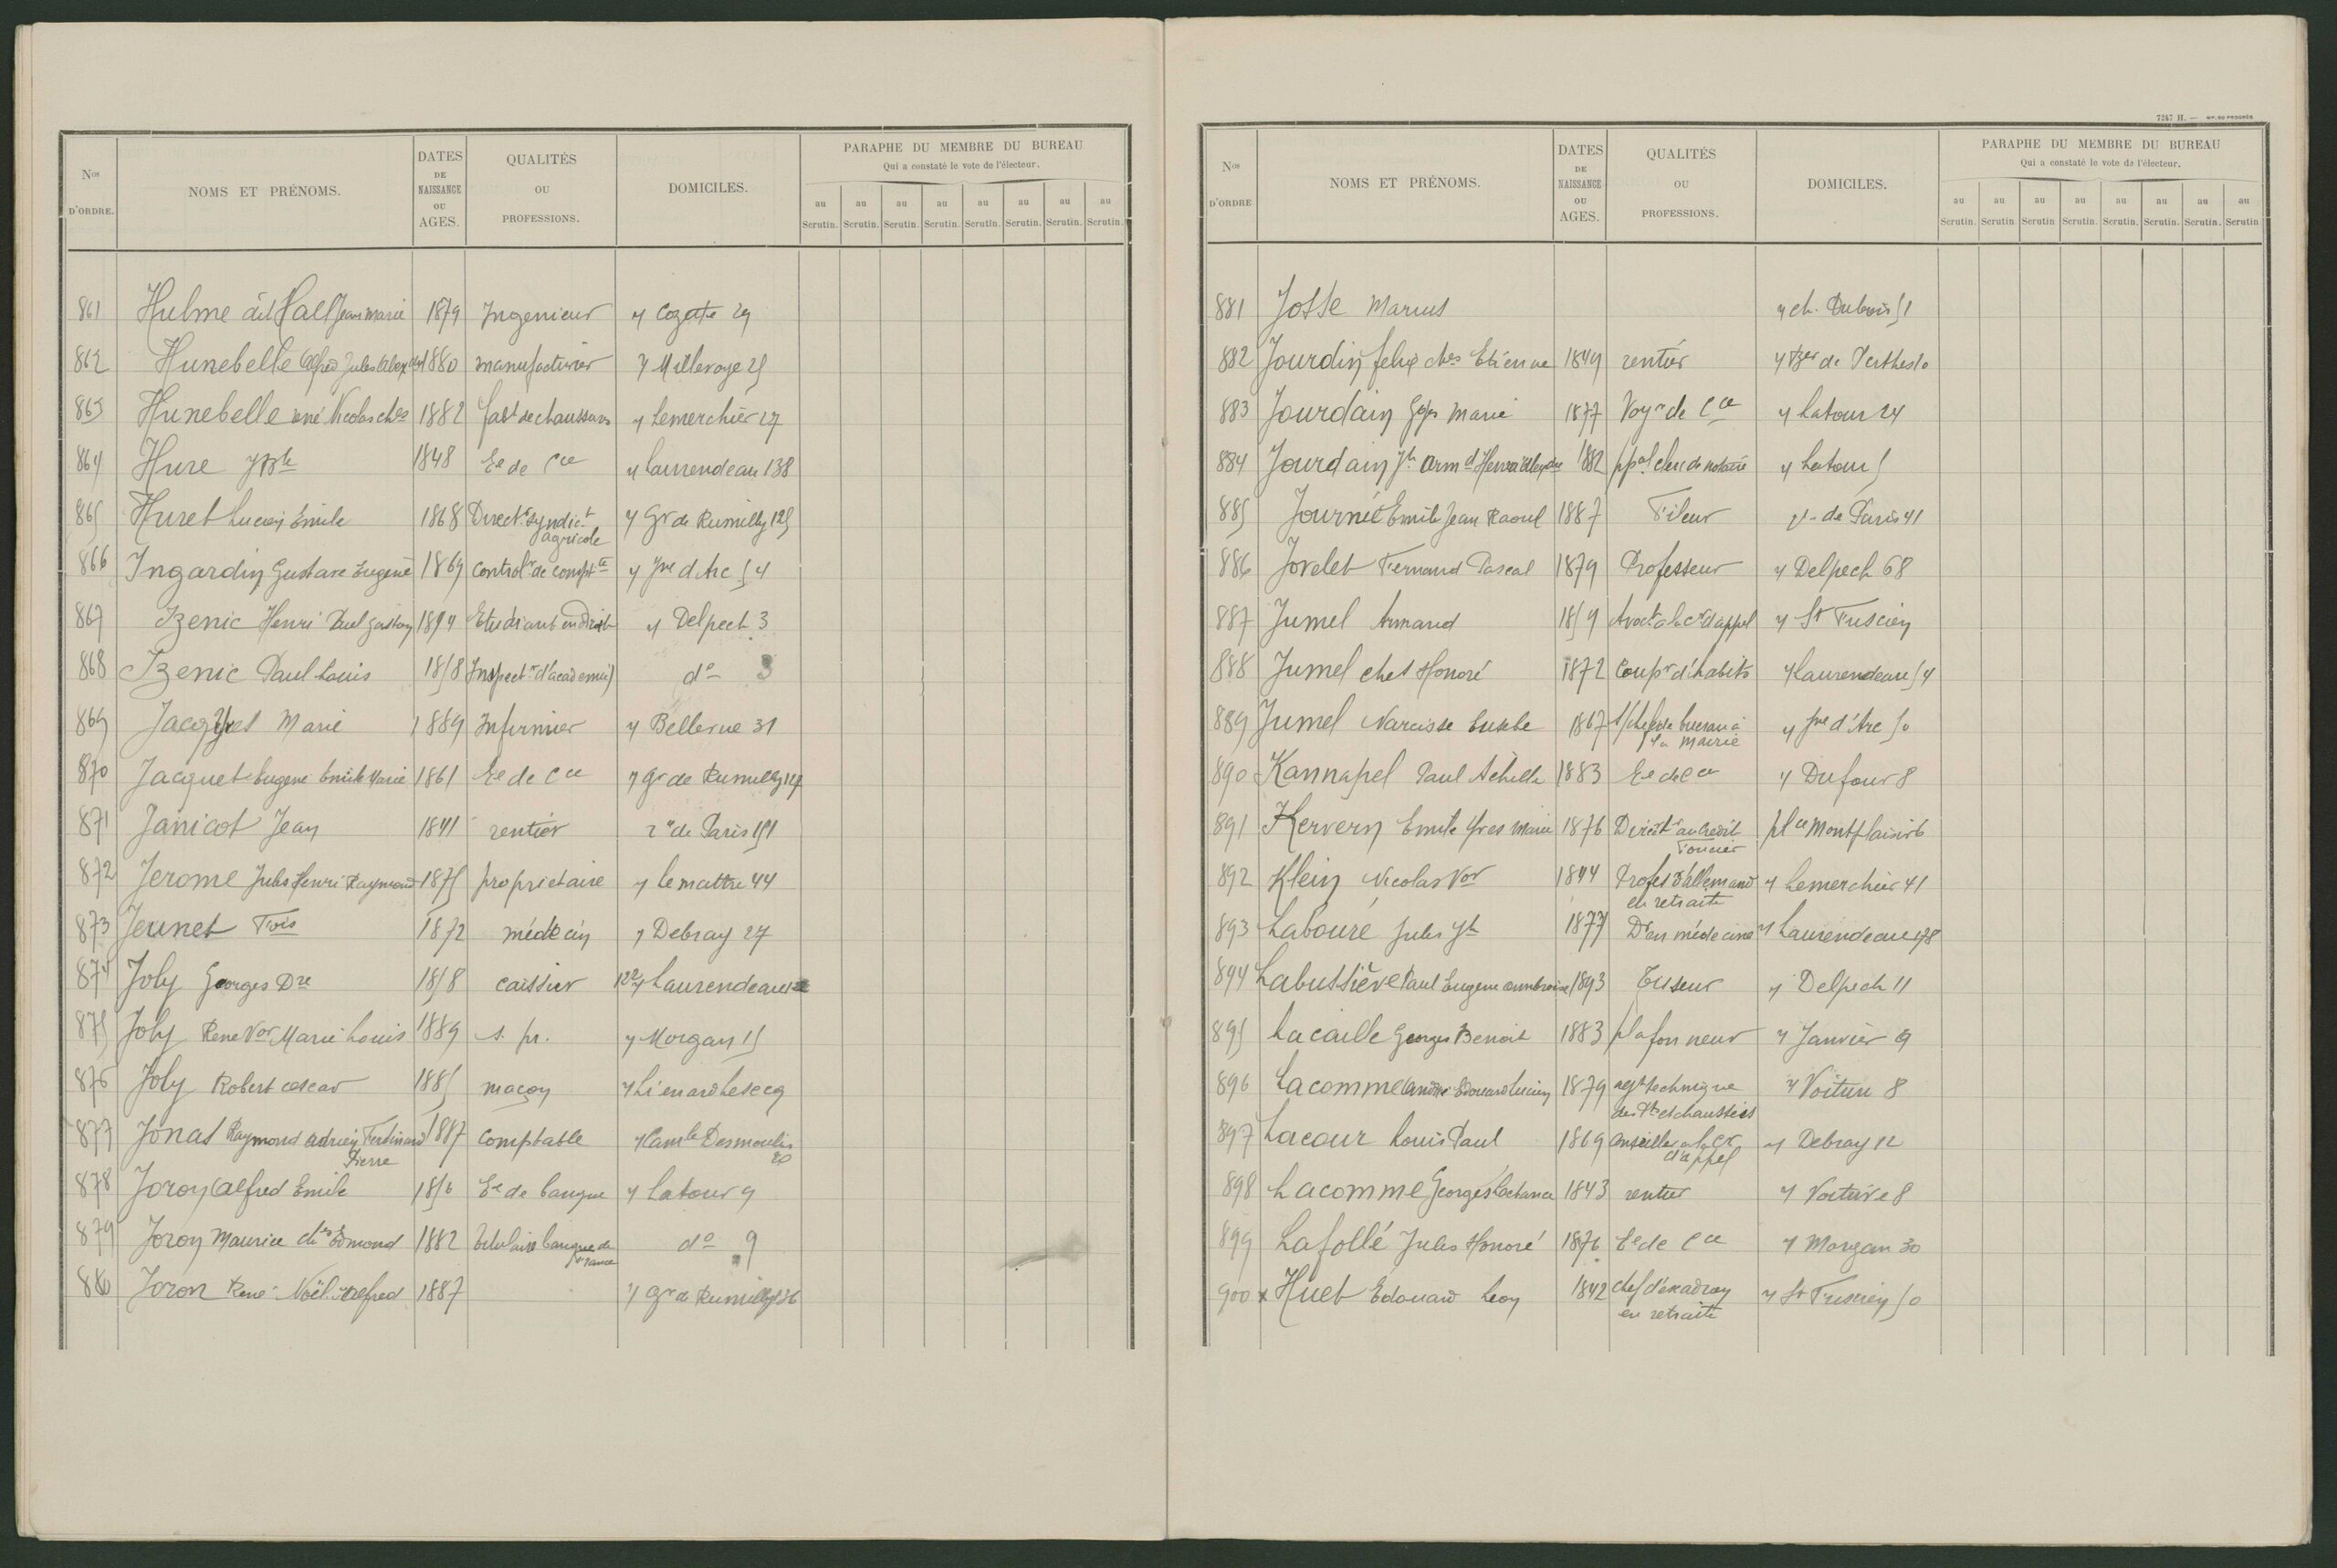 Nos D'ORDRE. NOMS ET PRÉNOMS. DATES DE NAISSANCE OU AGES. QUALITÉS OU PROFESSIONS. DOMICILES. PARAPHE DU MEMBRE DU BUREAU
Qui a constaté le vote de l'électeur.
au Scrutin. au Scrutin. au Scrutin. au Scrutin. au Scrutin. au Scrutin. au Scrutin. au Scrutin.
861 Hulme dit Hall Jean Marie 1879 Ingenieur r Cozette 29
862 Hunebelle Alfred Jules 1880 manufacturier r Millevoye 25
863 Hunebelle René Nicolas Chs 1882 fabt de chaussures r Lemerchier 27
864 Hure 1848 Ee de Cce r Laurendeau 138
865 Huret Lucien Emile 1868 Directr syndict r Gr de Rumilly 125
agricole
866 Ingardin Gustave Eugène 1869 Controlr de compté r Jne d'Arc 54
867 Izenic Henri Paul Gaston 1894 Etudiant en Droit r Delpech 3
868 Izenic Paul Louis 1858 Inspectr d'académie do 3
869 Jacques Marie 1889 Infirmier r Bellevue 31
870 Jacquet Eugene Emile Marie 1861 Ee de Cce r Gr de Rumilly 127
871 Janicot Jean 1841 rentier rte de Paris 151
872 Jerome Jules Henri Raymond 1875 propriétaire r Lemattre 44
873 Jeunet Fois 1872 médecin r Debray 27
874 Joly Georges Dre 1858 caissier 122 r Laurendeau
875 Joly René Vor Marie Louis 1889 s. pr. r Morgan 15
876 Joly Robert Oscar 1885 maçon r Liénard Lesecq
877 Jonas Raymond Adrien Ferdinand 1887 Comptable r Camle Desmoulins
Pierre 20
878 Joron Alfred Emile 1856 Ee de banque r Latour 9
879 Joron Maurice Chs Edmond 1882 titulaire banque de do 9
France
880 Joron René Noël Alfred 1887 r Gr de Rumilly 136
7267 H.
Nos D'ORDRE NOMS ET PRÉNOMS. DATES DE NAISSANCE OU AGES. QUALITÉS OU PROFESSIONS. DOMICILES. PARAPHE DU MEMBRE DU BUREAU
Qui a constaté le vote de l'électeur.
au Scrutin. au Scrutin. au Scrutin. au Scrutin. au Scrutin. au Scrutin. au Scrutin. au Scrutin
881 Josse Marius r ch. Dubois 51
882 Jourdin felix chs Etienne 1849 rentier r Bcr de Perthes 10
883 Jourdain Gges Marie 1877 Voyr de Cce r Latour 24
884 Jourdain Jh Armd Henri 1882 ppal clerc de notaire r Latour 5
885 Journié Emile Jean Raoul 1887 Fileur rte de Paris 41
886 Jovelet Fernand Pascal 1879 Professeur r Delpech 68
887 Jumel Armand 1859 Avoct à la Cr d'appel r St Fuscien
888 Jumel Chs Honoré 1872 Coupr d'habits r Laurendeau 54
889 Jumel Narcisse Eusèbe 1867 s/chef de bureau à r Jne d'Arc 50
la Mairie
890 Kannapel Paul Achille 1883 Ee de Cce r Dufour 8
891 Kervern Emile Yves Marie 1876 Directr au Crédit plce Montplaisir 6
Foncier
892 Klein Nicolas Vor 1844 Profes d'allemand r Lemerchier 41
en retraite
893 Labouré Jules Jh 1877 Dr en médecine r Laurendeau 178
894 Labussière Paul Eugene Ambroise 1893 Tisseur r Delpech 11
895 Lacaille Georges Benoit 1883 plafonneur r Janvier 9
896 Lacomme André Edouard Lucien 1879 agt technique r Voiture 8
des Pts et chaussées
897 Lacour Louis Paul 1869 Conseiller à la Cr r Debray 12
d'appel
898 Lacomme Georges 1843 rentier r Voiture 8
899 Lafollé Jules Honoré 1876 Ee de Cce r Morgan 30
900 x Huet Edouard Leon 1842 chef d'escadron r St Fuscien 50
en retraite